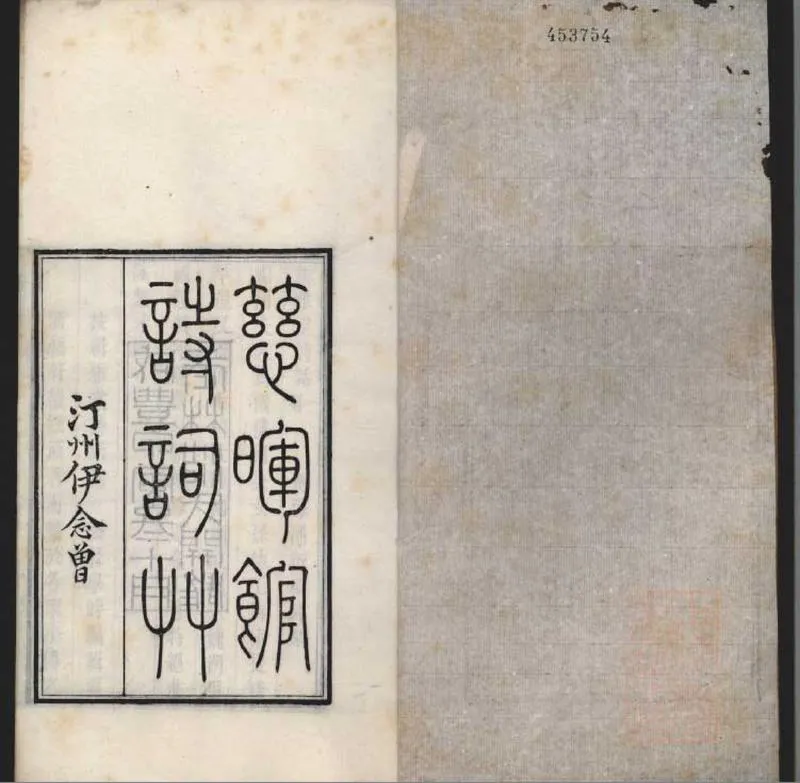 453754
慈暉館
詩詞艸
汀州伊念曾